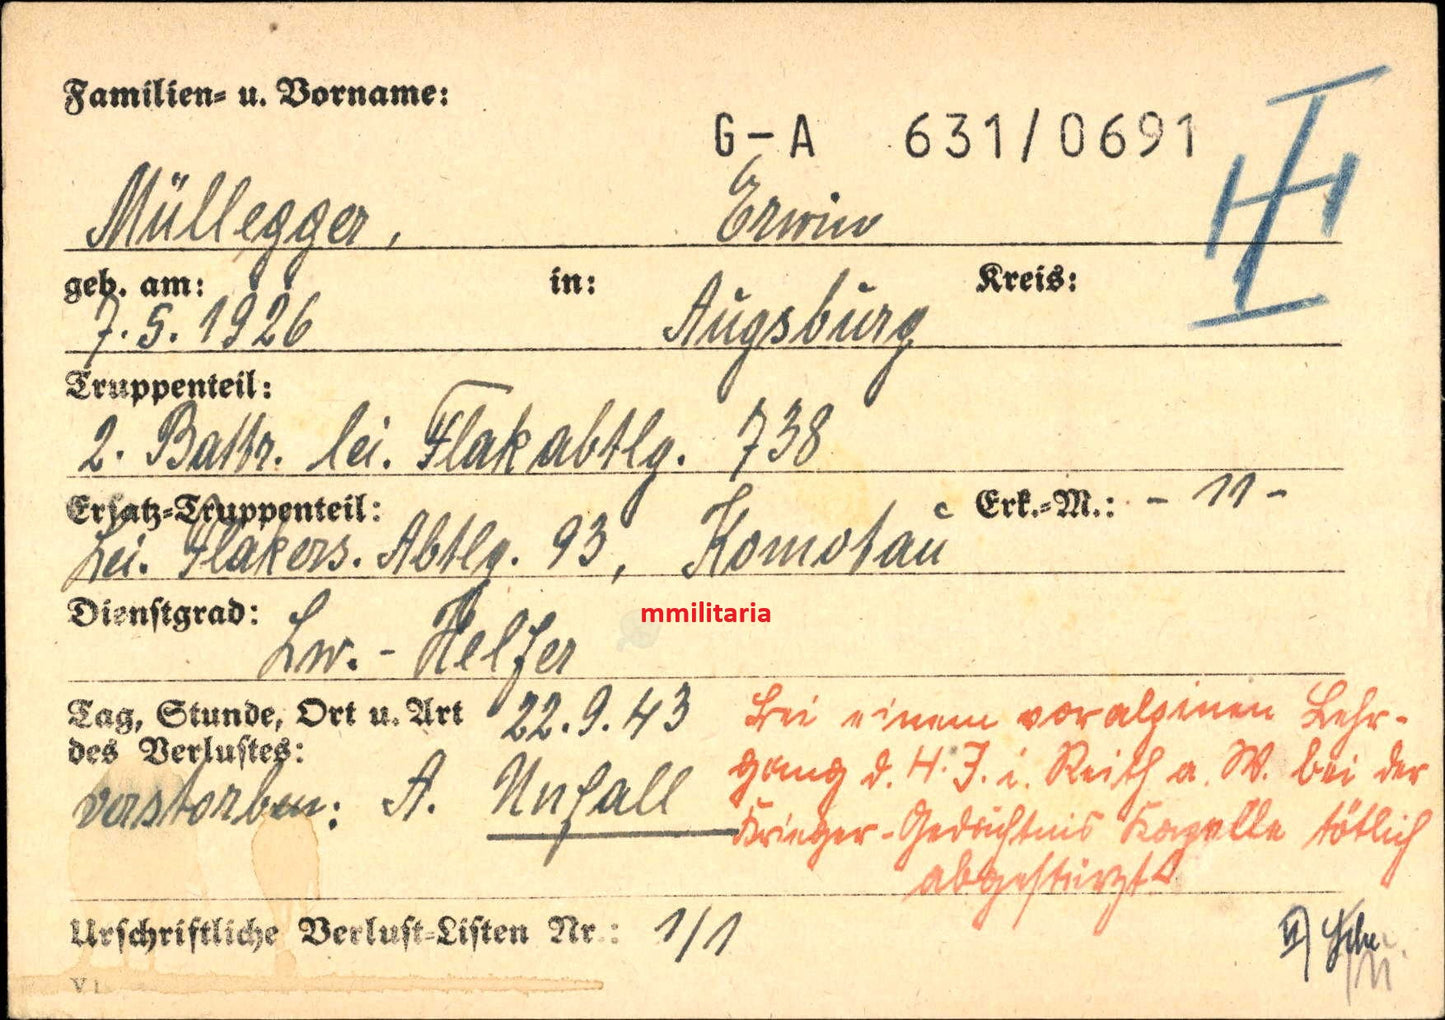 Familien- u. Vorname:
G-A 631/0691
Müllegger, Erwin
geb. am: in: Kreis:
7.5.1926 Augsburg
Truppenteil:
2. Battr. lei. Flakabtlg. 738
Ersatz-Truppenteil: Erk.-M.: - 11 -
Lei. Flakers. Abtlg. 93, Komotau
Dienstgrad:
mmilitaria
Lw.- Helfer
Tag, Stunde, Ort u. Art 22.9.43
des Verlustes:
verstorben: A. Unfall
Bei einem voralpinen Lehr-
gang d. H.J. i. Reith a. W. bei der
Krieger-Gedächtnis Kapelle tötlich
abgestürzt
Urschriftliche Verlust-Listen Nr.: 1/1